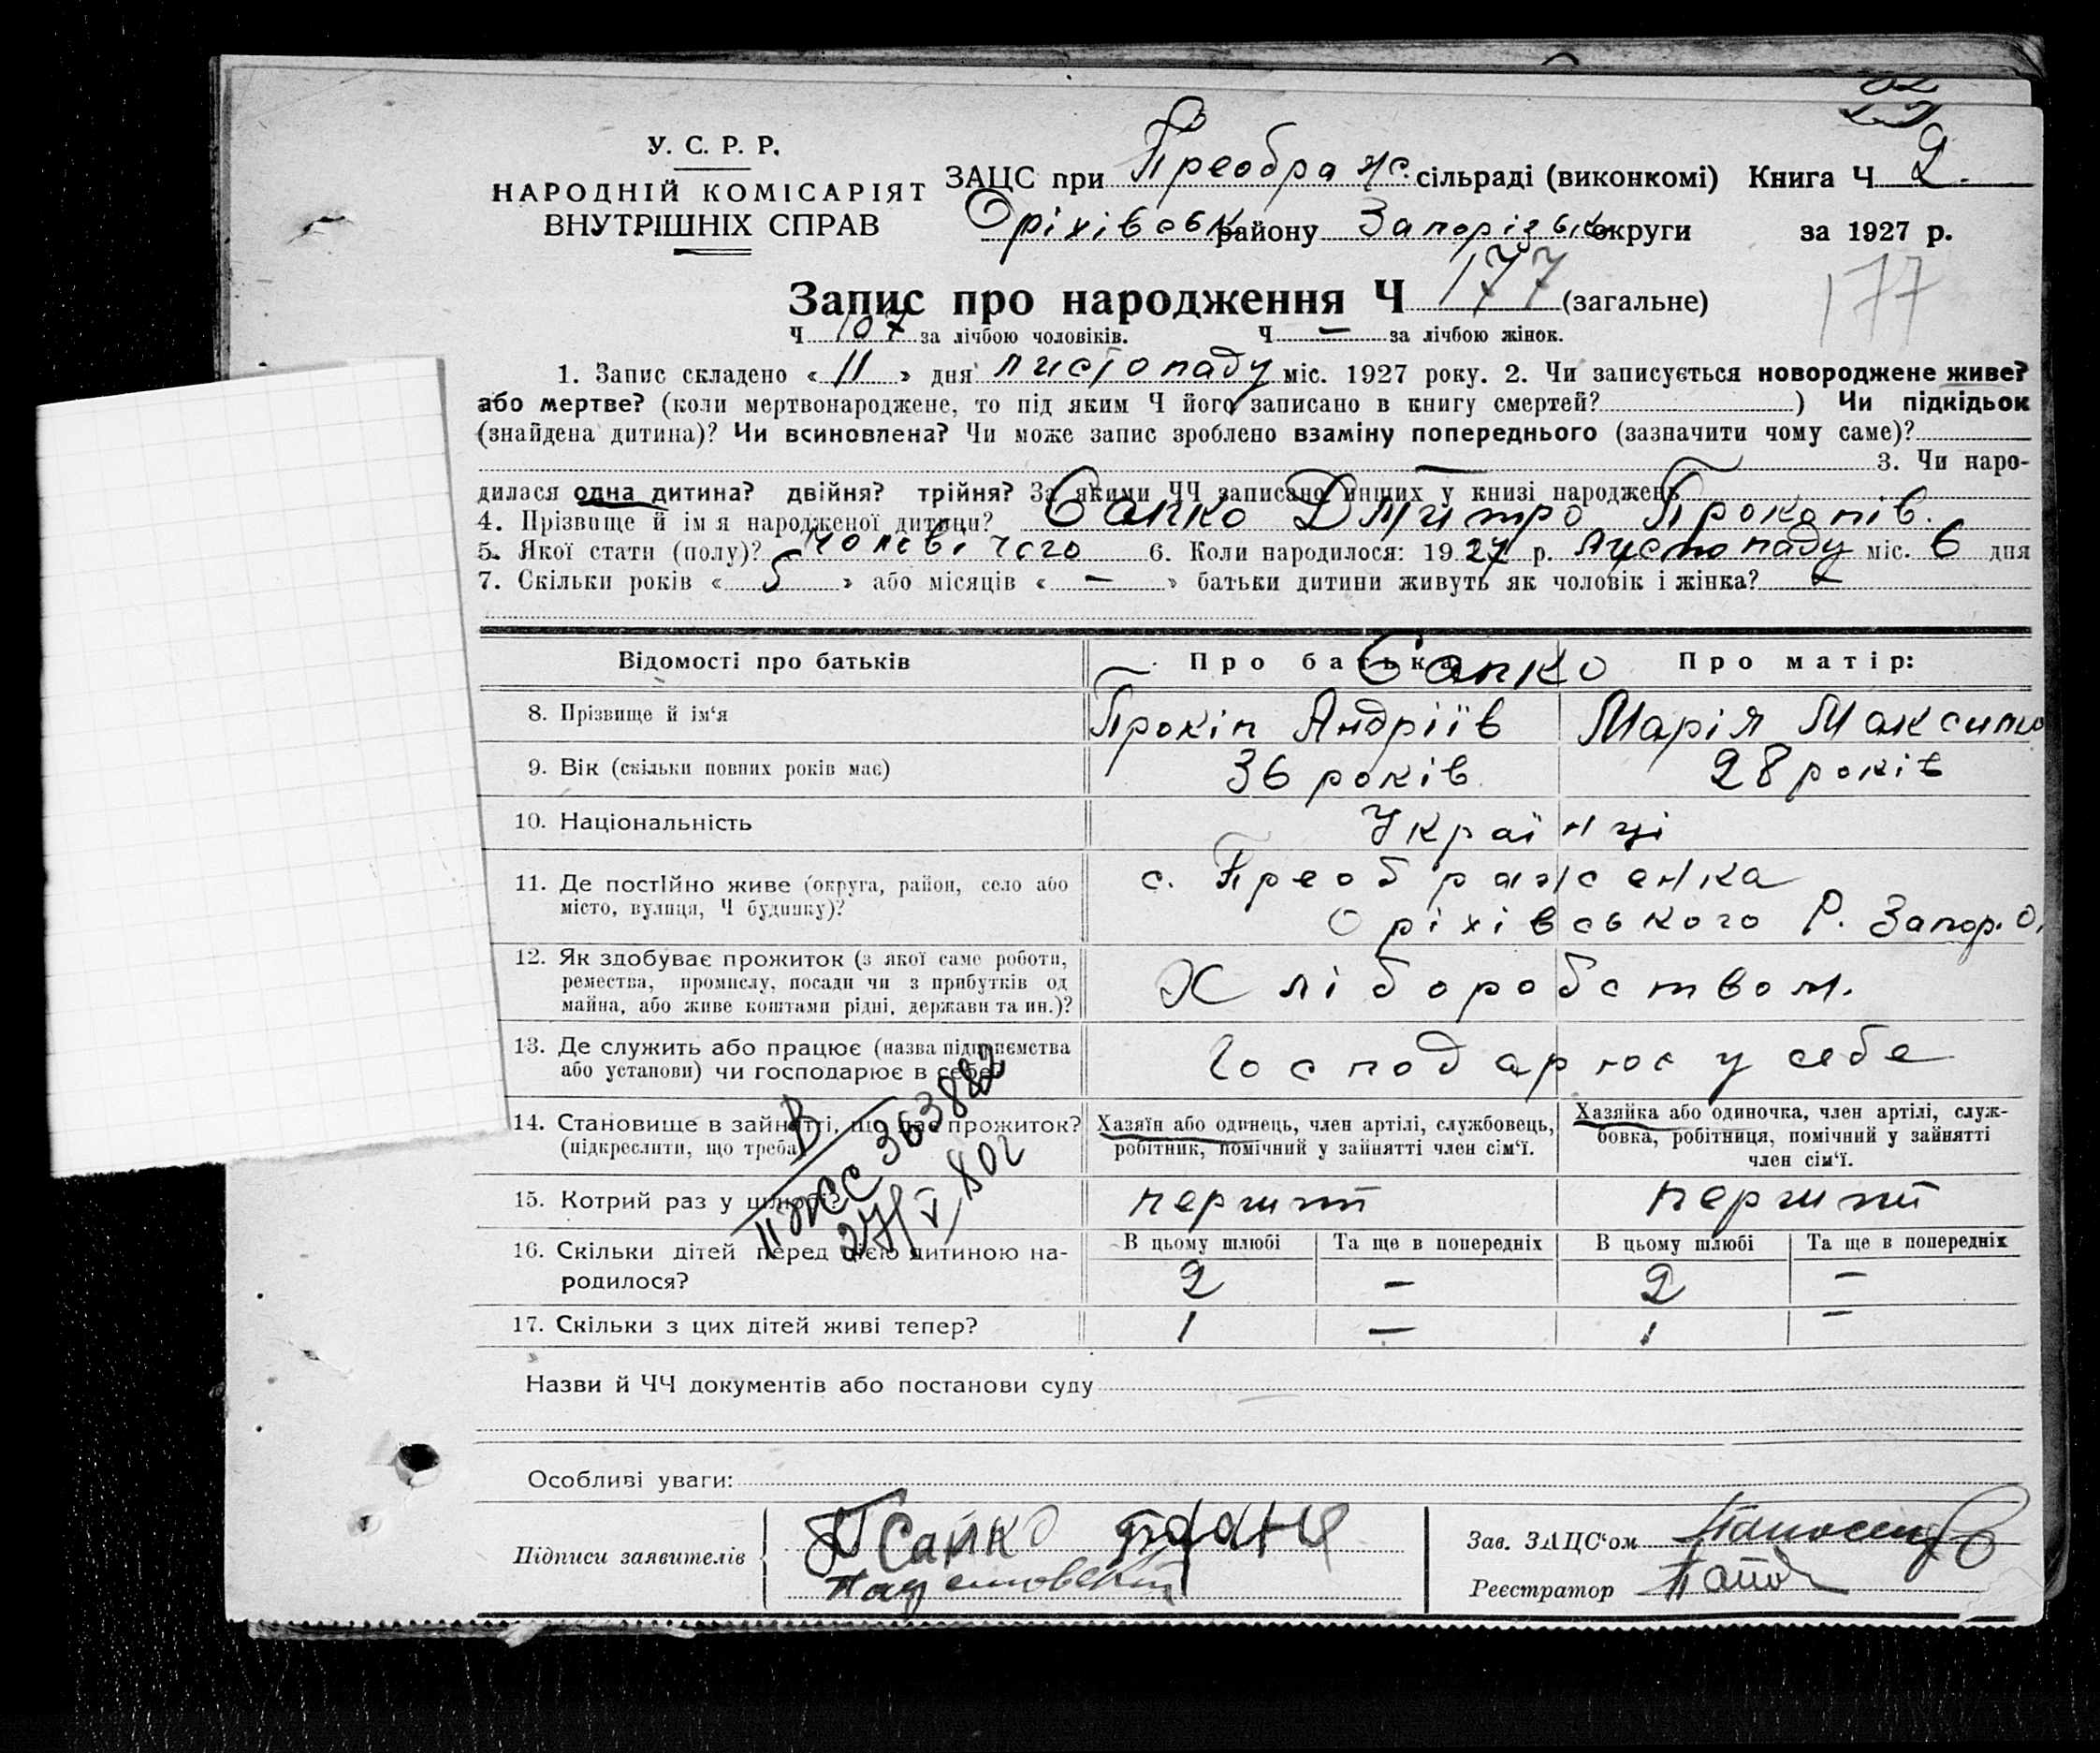 У. С. Р. Р.
НАРОДНІЙ КОМІСАРІЯТ
ВНУТРІШНІХ СПРАВ
ЗАЦС при Преображ. сільраді (виконкомі) Книга Ч 2.
Оріхівськ району Запорізьк округи за 1927 р.
Запис про народження Ч 177 (загальне)
177
Ч 107 за лічбою чоловіків. Ч — за лічбою жінок.
1. Запис складено « 11 » дня листопаду міс. 1927 року. 2. Чи записується новороджене живе?
або мертве? (коли мертвонароджене, то під яким Ч його записано в книгу смертей? ) Чи підкідьок
(знайдена дитина)? Чи всиновлена? Чи може запис зроблено взаміну попереднього (зазначити чому саме)?
— 3. Чи наро-
дилася одна дитина? двійня? трійня? За якими ЧЧ записано инших у книзі народжень
4. Прізвище й ім я народженої дитини? Сапко Дмитро Прокопів.
5. Якої стати (полу)? Чоловічого 6. Коли народилося: 1927 р. листопаду міс. 6 дня
7. Скільки років « 5 » або місяців « — » батьки дитини живуть як чоловік і жінка?
Відомості про батьків Про батька: Про матір:
Сапко
8. Прізвище й ім'я Прокіп Андріїв Марія Максимо
9. Вік (скільки повних років має) 36 років. 28 років
10. Національність Українці
11. Де постійно живе (округа, район, село або
місто, вулиця, Ч будинку)?
с. Преображенка
Оріхівського Р. Запор. О.
12. Як здобуває прожиток (з якої саме роботи,
ремества, промислу, посади чи з прибутків од
майна, або живе коштами рідні, держави та ин.)?
Хліборобством.
13. Де служить або працює (назва підприємства
або установи) чи господарює в себе?
Господарює у себе
14. Становище в зайнятті, що дає прожиток?
(підкреслити, що треба)
Хазяїн або одинець, член артілі, службовець,
робітник, помічний у зайнятті член сім'ї.
Хазяйка або одиночка, член артілі, служ-
бовка, робітниця, помічний у зайнятті
член сім'ї.
15. Котрий раз у шлюбі? перший перший
16. Скільки дітей перед цією дитиною на-
родилося?
В цьому шлюбі Та ще в попередніх В цьому шлюбі Та ще в попередніх
2 — 2 —
17. Скільки з цих дітей живі тепер? 1 — 1 —
Назви й ЧЧ документів або постанови суду
Особливі уваги:
Підписи заявителів
П Сапко
Зав. ЗАЦС'ом
Реєстратор